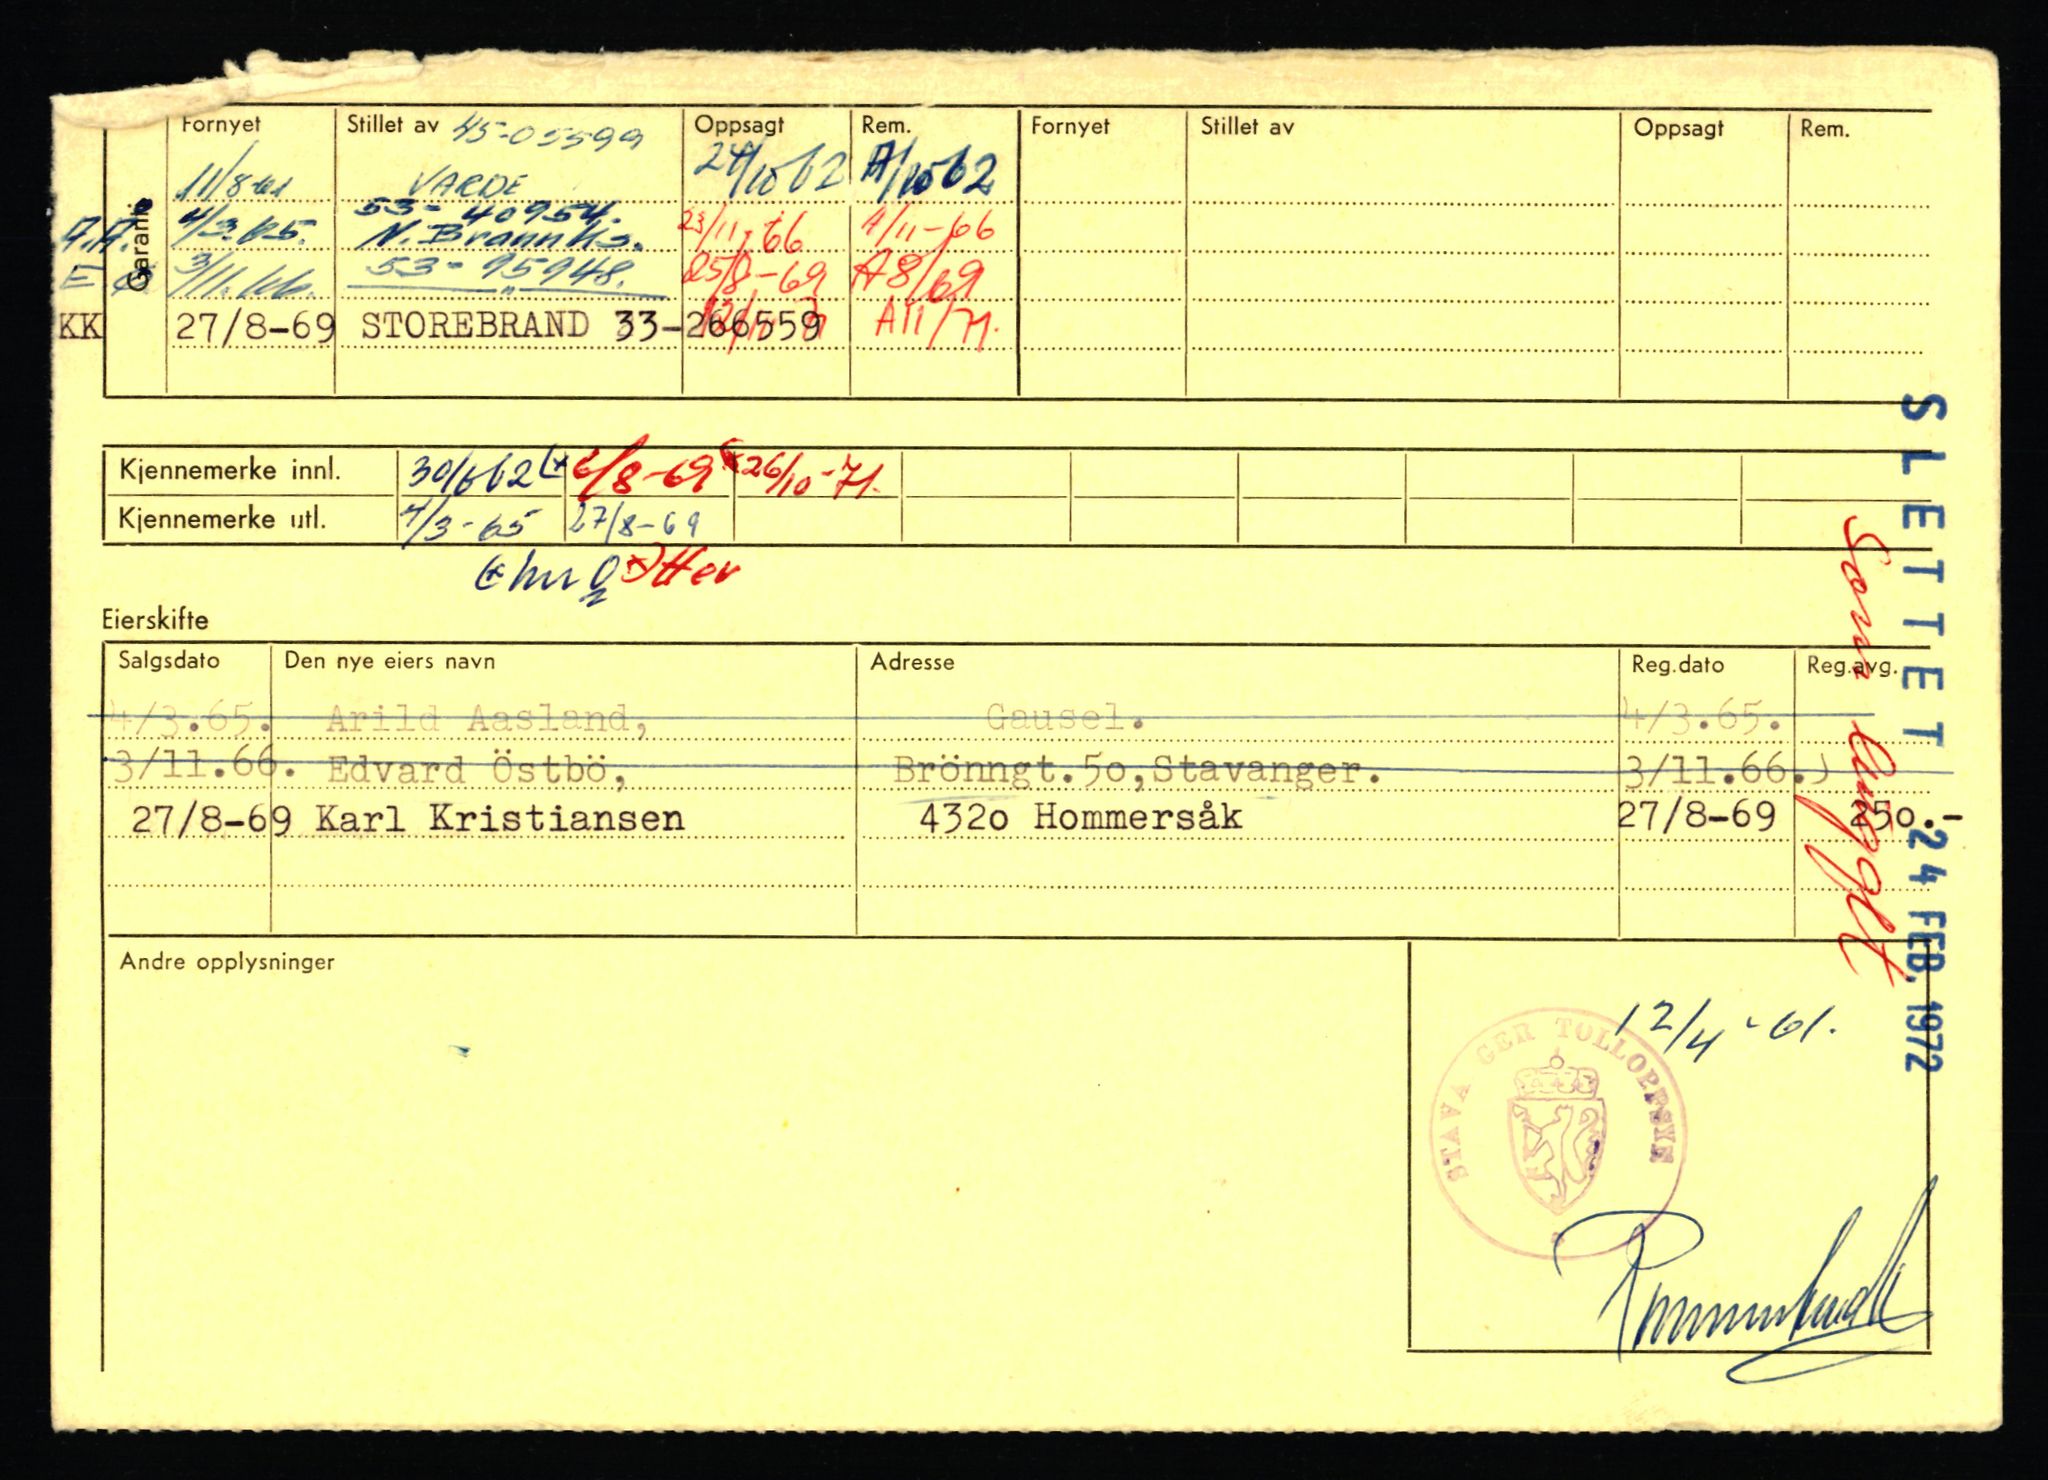 Fornyet Stillet av 45-05599 Oppsagt Rem. Fornyet Stillet av Oppsagt Rem.
Garanti
11/8-61 VARDE 24/10 62 A/10 62
53-40954.
A.A. 4/3.65. N. Brannks. 23/11-66 A/11-66
3/11.66. 53-95948. 25/8-69 A8/69
KK 27/8-69 STOREBRAND 33-266559 A11/71.
Kjennemerke innl. 30/6 62 6/8-69 26/10-71.
Kjennemerke utl. 4/3-65 27/8-69
Eierskifte
Salgsdato Den nye eiers navn Adresse Reg.dato Reg.avg.
4/3.65. Arild Aasland, Gausel. 4/3.65.
3/11.66. Edvard Östbö, Brönngt.5o,Stavanger. 3/11.66.
27/8-69 Karl Kristiansen 432o Hommersåk 27/8-69 25o.-
Andre opplysninger
SLETTET 24 FEB. 1972
Som
12/4-61.
STAVA GER TOLLOPPSYN